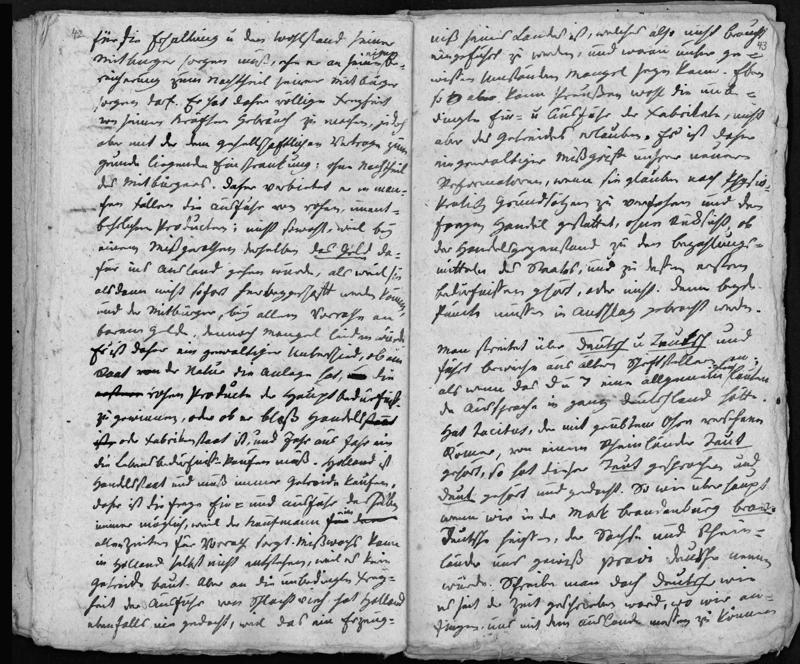 42
für die Erhaltung u den Wohlstand seiner
Mitbürger sorgen muß, ohne an seine eigene Be-
reicherung zum Nachtheil seiner Mitbürger
sorgen darf. Er hat daher völlige Freyheit
von seinen Kräften Gebrauch zu machen, jedoch
aber mit der dem gesellschaftlichen Vertrage zum
Grunde liegenden Einschränkung: ohne Nachtheil
des Mitbürgers. Daher verbietet er in man-
chen Fällen die Ausfuhr von rohen, unent-
behrlichen Producten; nicht sowohl, weil bey
einem Mißgerathen derselben das Geld da-
für ins Ausland gehen würde, als weil sie
alsdann nicht sofort herbeygeschafft werden können,
und der Mitbürger, bey allem Vorrathe an
barem Gelde, dennoch Mangel leiden würde.
Es ist daher ein gewaltiger Unterschied, ob ein
Staat von der Natur die Anlage hat, die
rohen Producte der Hauptbedürfniße
zu gewinnen, oder ob er bloß Handelsstaat
oder Fabrikenstaat ist, und Jahr aus Jahr ein
die Lebensbedürfniße kaufen muß. Holland ist
Handelsstaat und muß immer Getreide kaufen,
daher ist die freye Ein- und Ausfuhr desselben
immer möglich, weil der Kaufmann
allezeit für Vorrath sorgt. Mißwachs kann
in Holland selbst nicht entstehen, weil es kein
Getreide baut. Aber an die unbedingte Frey-
heit der Ausfuhr von Schlachtvieh hat Holland
ebenfalls nie gedacht, weil das ein Erzeug-
43
niß seines Landes ist, welches also nicht braucht
eingeführt zu werden, und woran unter ge-
wissen Umständen Mangel seyn kann. Eben
so aber kann Preußen wohl die unbe-
dingte Ein- u Ausfuhr der Fabrikate, nicht
aber des Getreides erlauben. Es ist daher
ein gewaltiger Mißgriff unsrer neuern
Reformatoren, wenn sie glauben nach physio-
kratisch Grundsätzen zu verfahren und den
freyen Handel gestatten, ohne Rücksicht, ob
der Handelsgegenstand zu den Bezahlungs-
mitteln des Staats, und zu dessen ersten
Bedürfnissen gehört, oder nicht. Denn beyde
Punkte müssen in Anschlag gebracht werden.
Man streitet über Deutsch u Teutsch und
führt Beweise aus alten Schriftstellern an;
als wenn das D u T eine allgemein lauten-
de Aussprache in ganz Deutschland hätte.
Hat Tacitus, der mit geübtem Ohre versehene
Römer, von einem Rheinländer Teut
gehört, so hat dieser Teut gesprochen und
Deut gehört und gedacht. So wie überhaupt
wenn wir in der Mark Brandenburg brav
Deutsche heißen, der Sachse und Rhein-
länder uns gewiß pravi Deutsche nennen
würde. Schreibe man doch Deutsch wie
es seit der Zeit geschrieben ward, wo wir an-
fingen, uns mit dem Auslande messen zu können